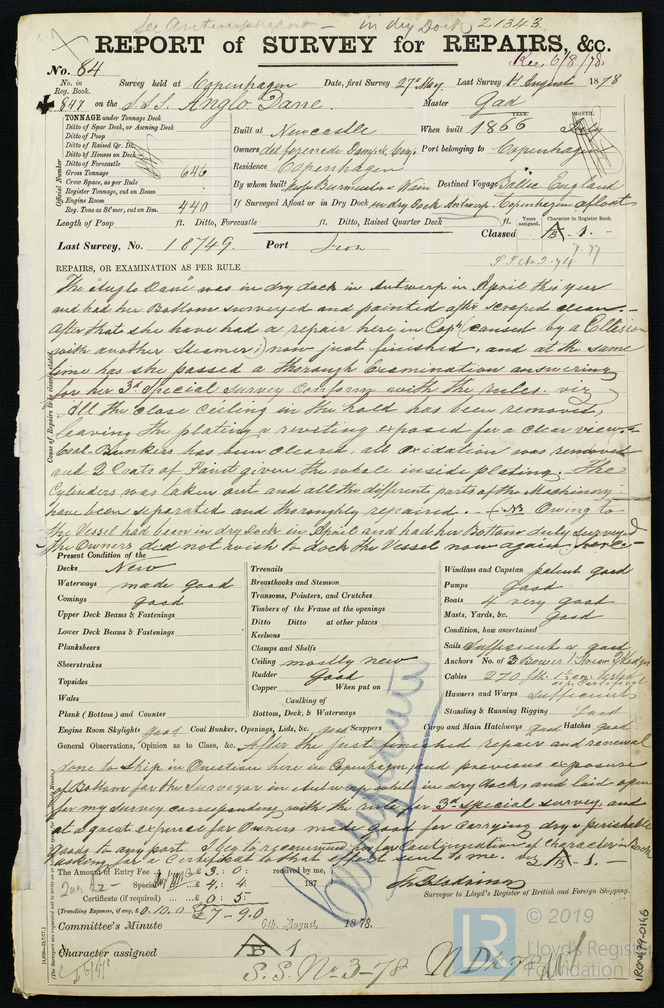 See Antwerp report - in dry Dock 21343
REPORT of SURVEY for REPAIRS, &c.
Rec 6/8/78
No. 84
No. in Reg. Book.
Survey held at Copenhagen Date, first Survey 27th May Last Survey 1st August 1878
847 on the S.S.S. Anglo Dane Master Gad
TONNAGE under Tonnage Deck
Ditto of Spar Deck, or Awning Deck
Ditto of Poop
Ditto of Raised Qr. Dk.
Ditto of Houses on Deck
Ditto of Forecastle
Gross Tonnage 646
Crew Space, as per Rule
Register Tonnage, cut on Beam
Engine Room
Reg. Tons as St'mer, cut on Bm. 440
Official Number
Built at Newcastle When built YEAR. 1866 MONTH. July
Owners det forenede Dampsk. Comp. Port belonging to Copenhagen
Residence Copenhagen
By whom built Burmeister & Wain Destined Voyage Baltic England
If Surveyed Afloat or in Dry Dock in dry Dock Antwerp, Copenhagen afloat
Length of Poop ft. Ditto, Forecastle ft. Ditto, Raised Quarter Deck ft.
Years assigned. Character in Register Book.
Last Survey, No. 18749. Port Iron Classed A B . 1. -
7.77
REPAIRS, OR EXAMINATION AS PER RULE
The "Anglo Dane" was in dry dock in Antwerp in April this year
and had her Bottom surveyed and painted after scraped clean. -
After that she have had a repair here in Coph (caused by a Collision
with another Steamer;) now just finished, and at the same
time has she passed a thorough examination answering
for her 3d Special Survey Conform with the rules. viz
All the close ceiling in the hold has been removed,
leaving the plating & riveting exposed for a clear view. -
Coal-Bunkers has been cleared, all oxidation was removed
and 2 Coats of Paint given the whole inside plating. The
Cylinders was taken out and all the differents parts of the Machinery
have been separated and thoroughly repaired. - NB Owing to
the Vessel had been in dry dock in April and had her Bottom duly surveyed
the Owners did not wish to dock the Vessel now again
Cause of Repairs to be clearly stated.
Present Condition of the
Decks New
Waterways made good
Comings good
Upper Deck Beams & Fastenings
Lower Deck Beams & Fastenings
Planksheers
Sheerstrakes
Topsides
Wales
Plank (Bottom) and Counter
Treenails
Breasthooks and Stemson
Transoms, Pointers, and Crutches
Timbers of the Frame at the openings
Ditto Ditto at other places
Keelsons
Clamps and Shelfs
Ceiling mostly new
Rudder Good
Copper When put on
Caulking of
Bottom, Deck, & Waterways
Windlass and Capstan patent good
Pumps Good
Boats 4 very good
Masts, Yards, &c. Good
Condition, how ascertained
Sails Sufficient & good
Anchors No. of 3 Bower 1 Stream 2 Kedges
Cables 270 fth
Hawsers and Warps Sufficient
Standing & Running Rigging Good
Engine Room Skylights good Coal Bunker, Openings, Lids, &c. good Scuppers Cargo and Main Hatchways good Hatches good
General Observations, Opinion as to Class, &c. After the just finished repair and renewal
done to Ship in Question here in Copenhagen, and previous exposure
of Bottom for the Surveyor in Antwerp while in dry dock, and laid open
for my survey corresponding with the rule for 3d special survey, and
at a great expence for Owners made good for carrying dry & perishable
goods to any part. I beg to recommend her for Continuation of Character in Book
asking for a Certificate to that effect sent to me. viz A B - 1. -
The Amount of Entry Fee £ 3 : 0 : received by me,
Special £ 4 : 4 : 187
Certificate (if required) £ 0 : 5 :
(Travelling Expenses, if any, £ 0.10.0) £7 - 9.0
Surveyor to Lloyd's Register of British and Foreign Shipping.
Committee's Minute 6th August 1878.
Character assigned A B 1
S.S. No 3-78
© 2019
Lloyd's Register
Foundation
IRON479-0146